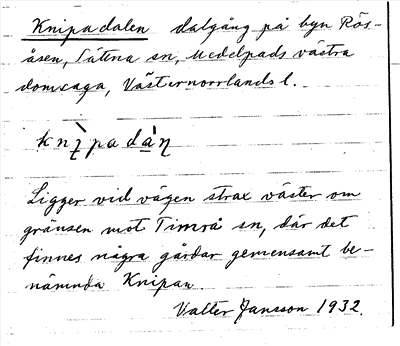 Knipadalen dalgång på byn Rös-
åsen, Sätena sn, Medelpads västra
domsaga, Västernorrlands l.
knìpadàn
Ligger vid vägen strax väster om
gränsen mot Timrå sn, där det
finnes några gårdar gemensamt be-
nämnda Knipan.
Valter Jansson 1932.